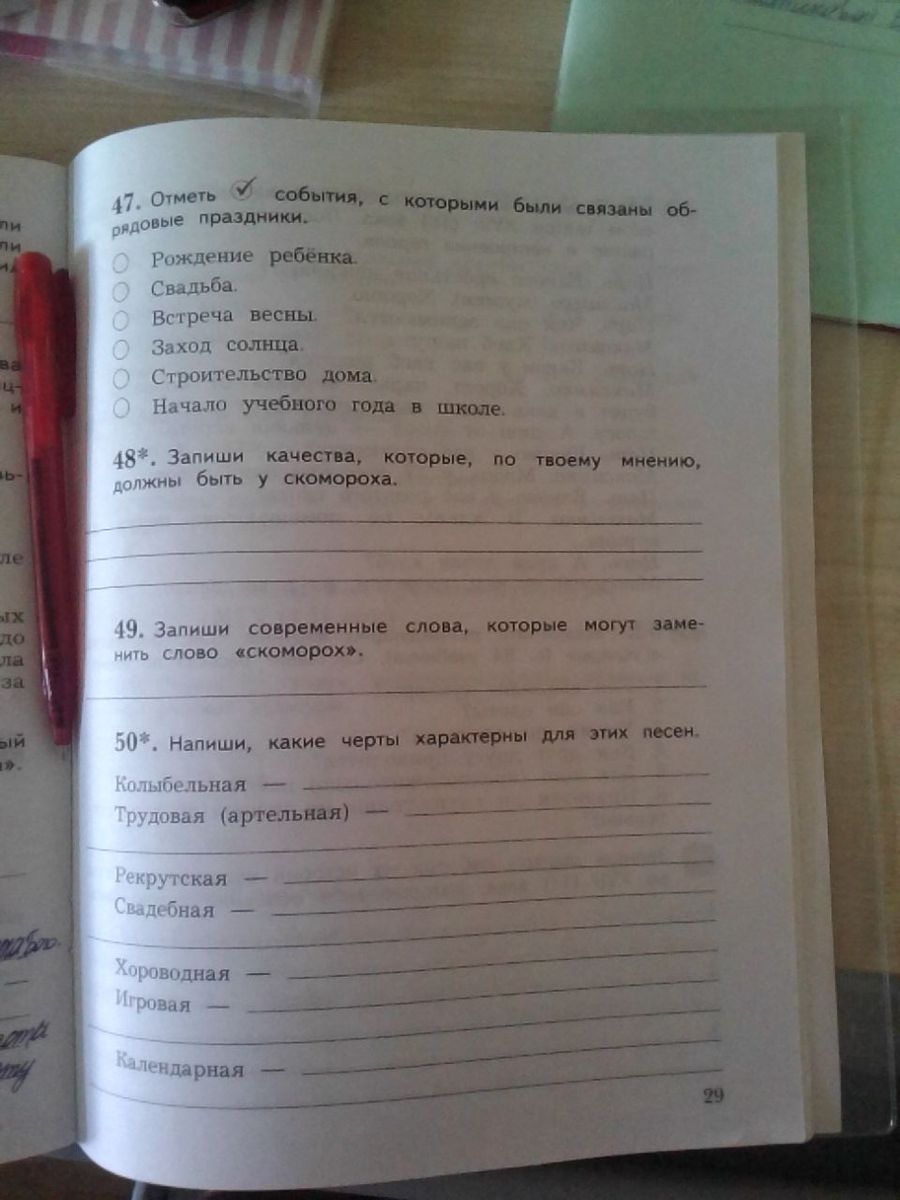 47. Отметь события, с которыми были связаны об-
рядовые праздники.
Рождение ребёнка.
Свадьба.
Встреча весны.
Заход солнца.
Строительство дома.
Начало учебного года в школе.
48*. Запиши качества, которые, по твоему мнению,
должны быть у скомороха.
49. Запиши современные слова, которые могут заме-
нить слово «скоморох».
50*. Напиши, какие черты характерны для этих песен.
Колыбельная —
Трудовая (артельная) —
Рекрутская —
Свадебная —
Хороводная —
Игровая —
Календарная —
29